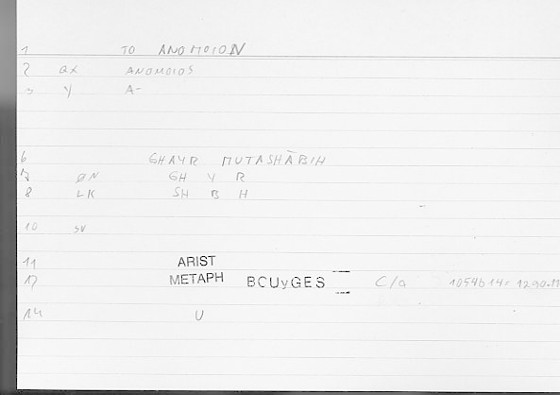 1 TO ANOMOION
2 ax ANOMOIOS
3 y A-
6 GHAYR MUTASHĀBIH
7 ØN GH Y R
8 LK SH B H
10 sv
11 ARIST
12 METAPH BOUyGES C/a 1054b14
14 U